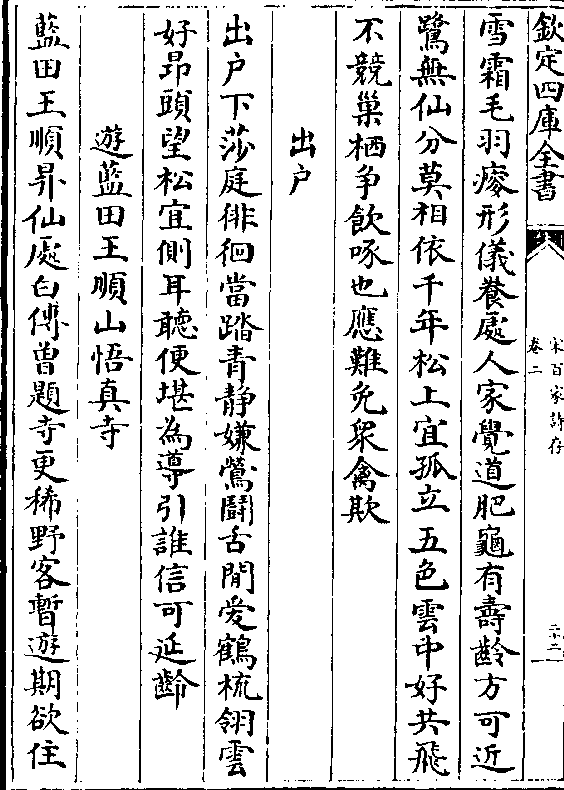 欽定四庫全書
宋百家詩存
卷二
二十二
雪霜毛羽瘦形儀養處人家覺道肥龜有壽齡方可近
鷺無仙分莫相依千年松上宜孤立五色雲中好共飛
不競巢栖争飲啄也應難免衆禽欺
出戶
出戶下莎庭徘徊當踏青静嫌鶯鬪舌閒爱鶴梳翎雲
好昂頭望松宜側耳聽便堪為導引誰信可延齡
遊藍田王順山悟真寺
藍田王順昇仙處白傅曽題寺更稀野客暫遊期欲住